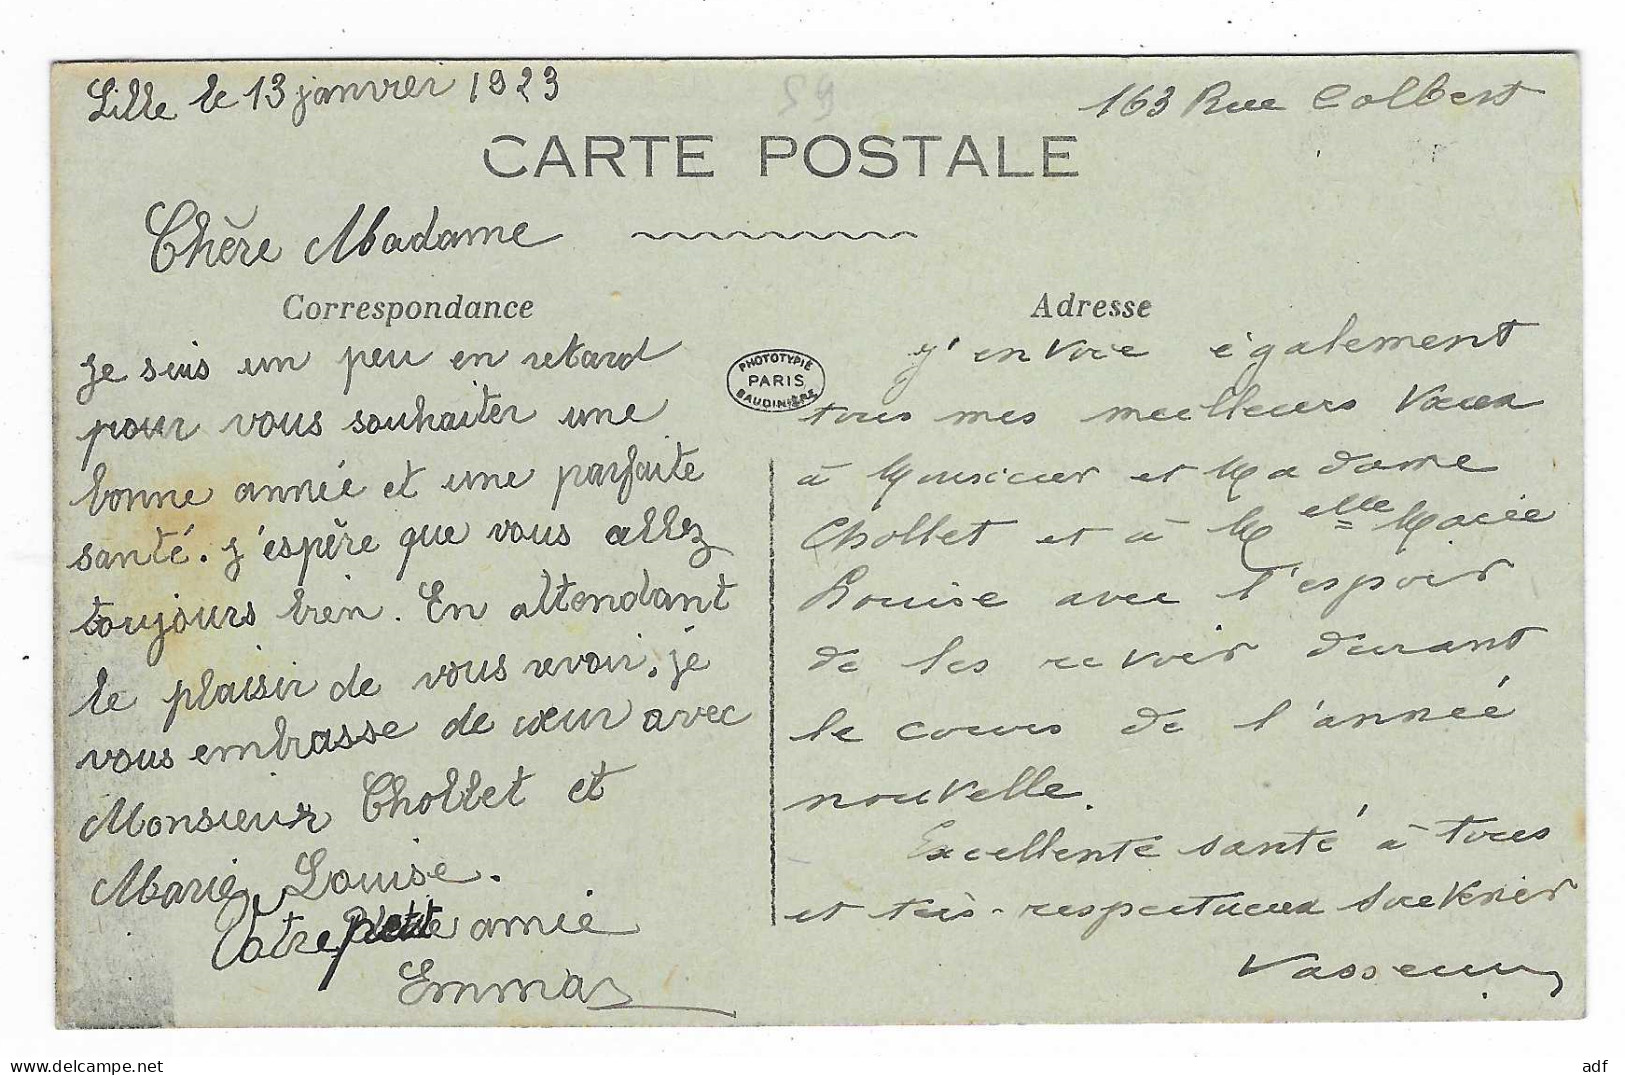 Lille le 13 janvier 1923
163 Rue Colbert
59
CARTE POSTALE
Chère Madame
Correspondance
je suis un peu en retard
pour vous souhaiter une
bonne année et une parfaite
santé. j'espère que vous allez
toujours bien. En attendant
le plaisir de vous revoir, je
vous embrasse de cœur avec
Monsieur Chollet et
Marie Louise.
Votre petite amie
Emma
PHOTOTYPIE
PARIS
BAUDINIÈRE
Adresse
j'envoie également
tous mes meilleurs vœux
à Monsieur et Madame
Chollet et à Melle Marie
Louise avec l'espoir
de les revoir durant
le cours de l'année
nouvelle.
Excellente santé à tous
et très-respectueux souvenir
Vasseur
adf